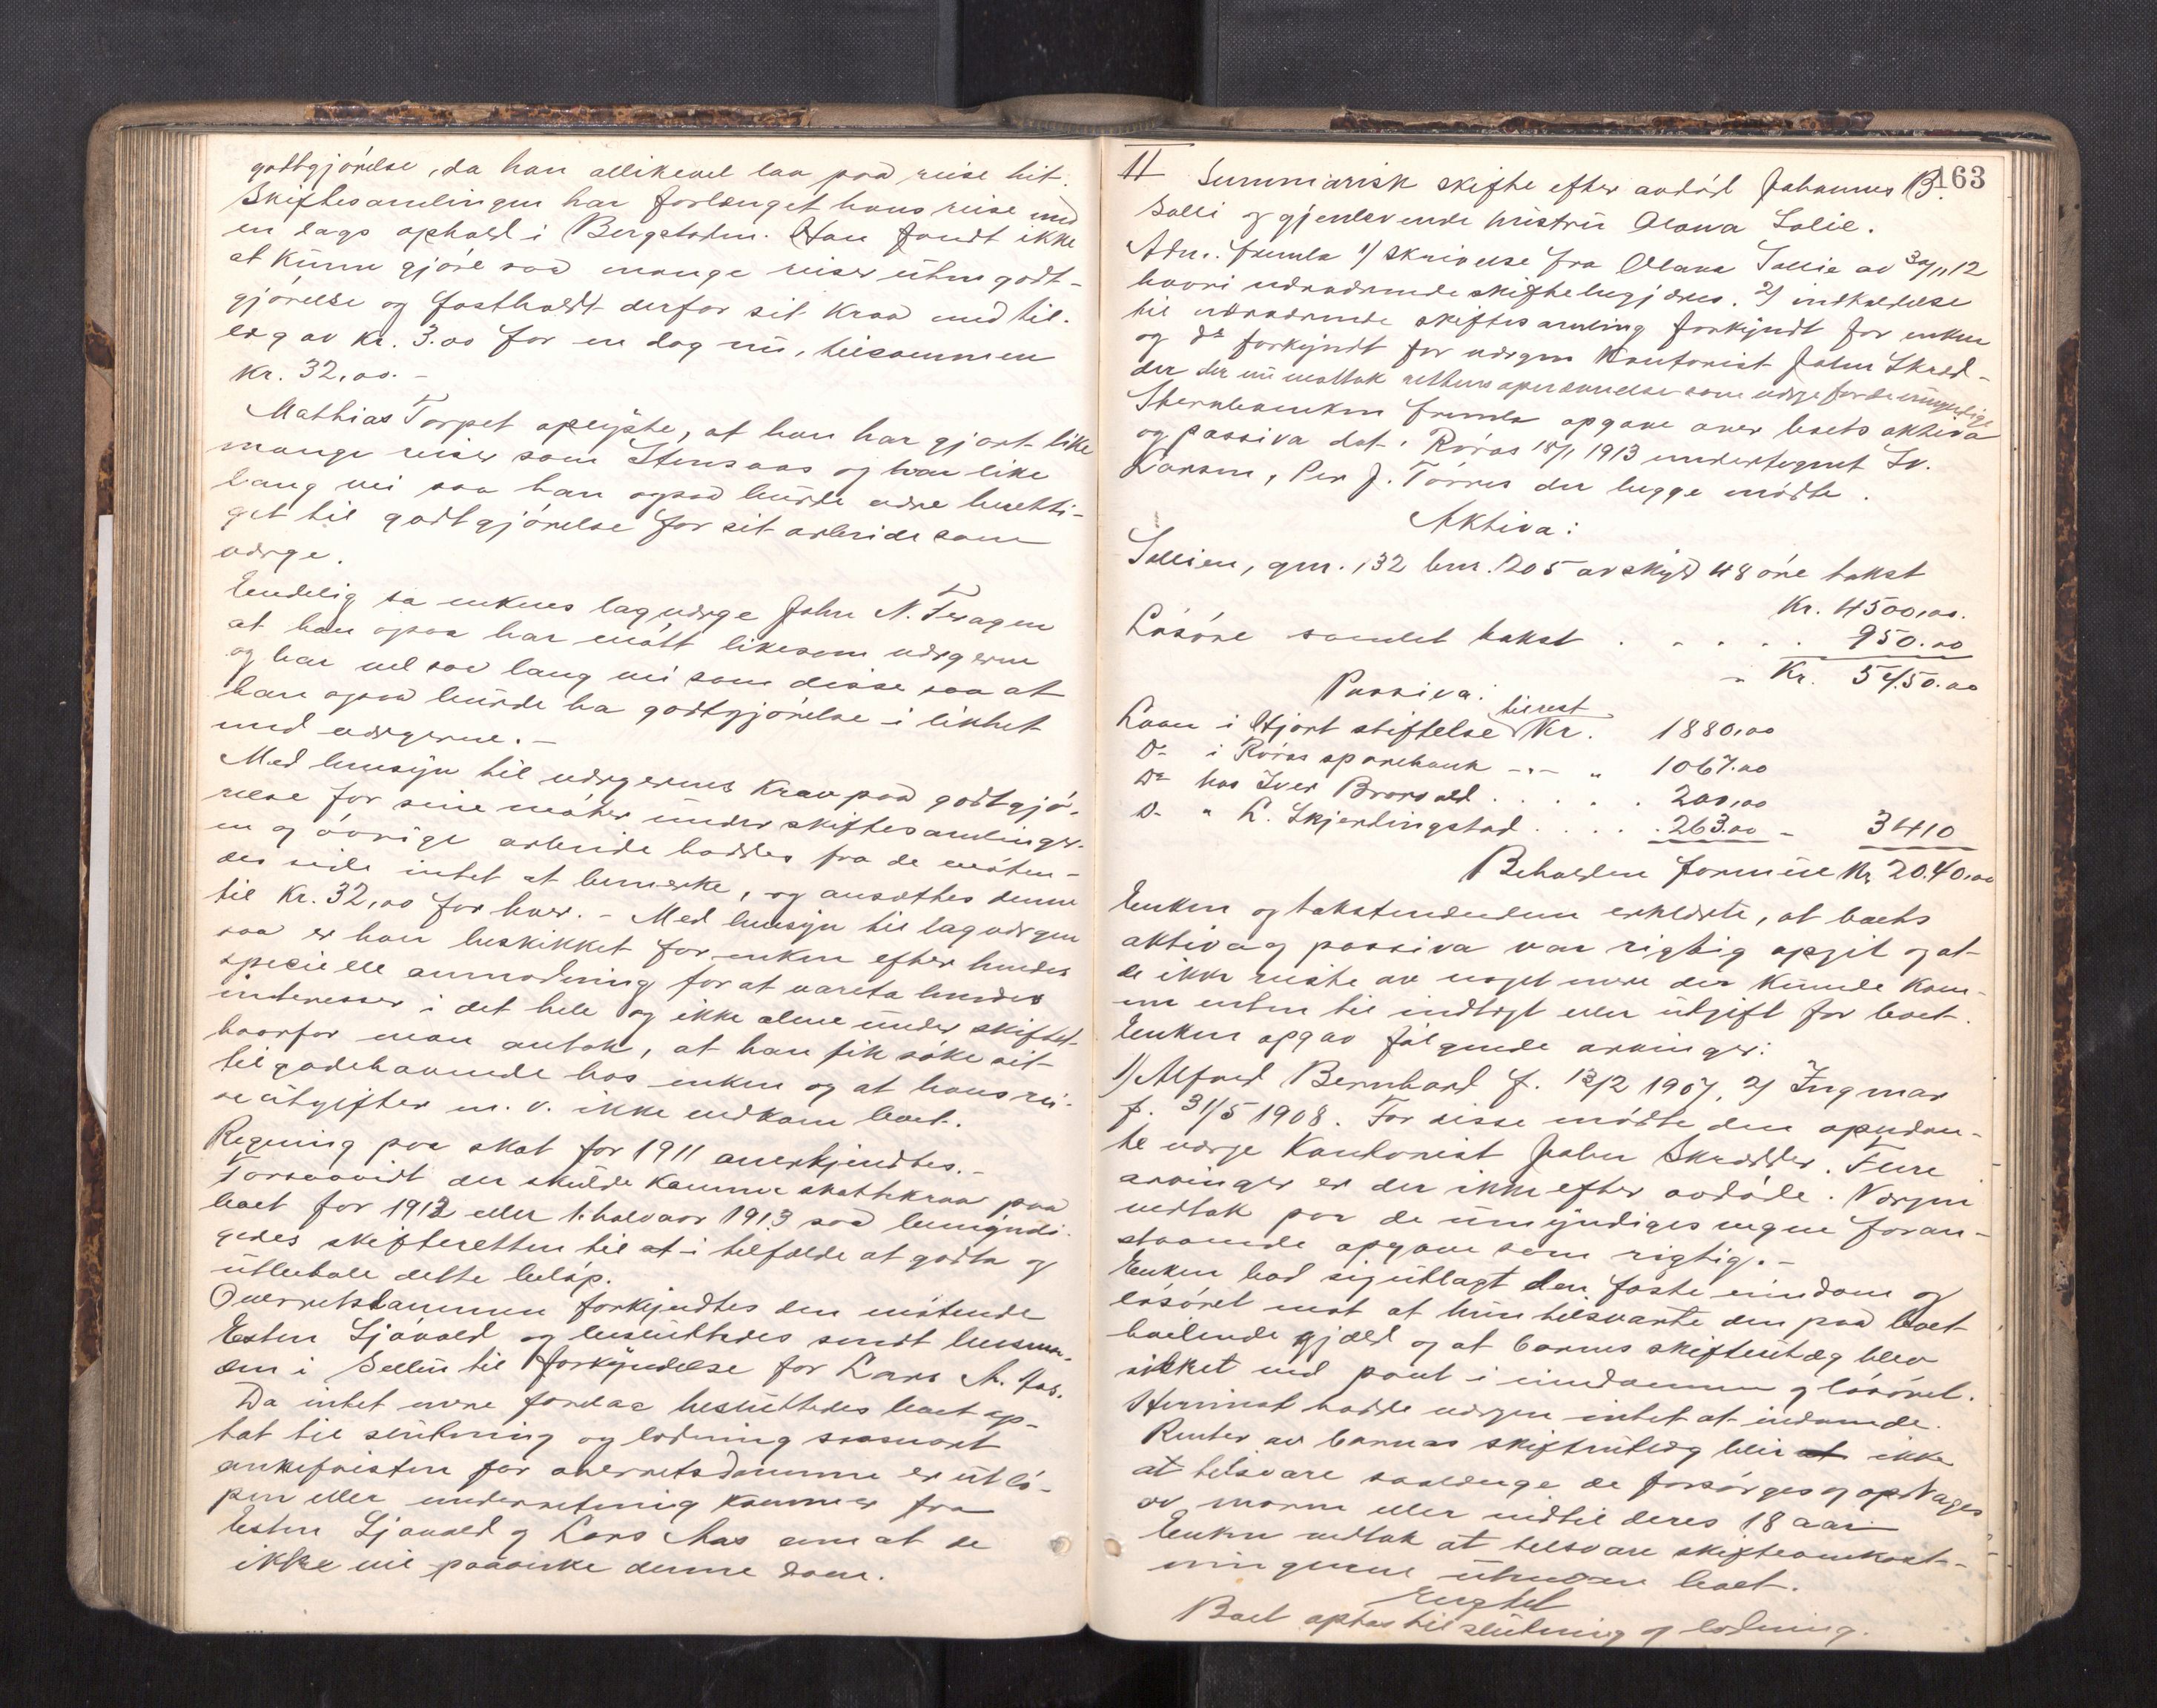 godtgjörelse, da han allikevel laa paa reise hit.
Skiftesamlingen har forlænget hans reise med
en dags ophold i Bergstaden. Han fandt ikke
at kunne gjöre saa mange reiser uten godt-
gjörelse og fastholdt derfor sit krav med til-
læg av kr. 3.00 for en dag nu, tilsammen
kr. 32,00.-
Mathias Torpet oplyste, at han har gjort like
mange reiser som Stensaas og har like
lang vei saa han ogsaa burde være beretti-
get til godtgjörelse for sit arbeide som
værge.
Endelig sa enkens lagværge John N. Feragen
at han ogsaa har mött likesom værgerne
og har vel saa lang vei som disse saa at
han ogsaa burde ha godtgjörelse i likhet
med værgerne.-
Med hensyn til værgernes krav paa godtgjö-
relse for sine möter under skiftesamlinger-
ne og övrige arbeide haddes fra de möten-
des side intet at bemerke, og ansattes denne
til kr. 32,00 for hver.- Med hensyn til lagværgen
saa er han beskikket for enken efter hendes
specielle anmodning for at vareta hendes
interesser i det hele og ikke alene under skiftet
hvorfor man antok, at han fik söke sit
tilgodehavende hos enken og at hans rei-
seutgifter m. v. ikke vedkom boet.
Regning paa skat for 1911 anerkjendtes.-
Forsaavidt der skulde komme skattekrav paa
boet for 1912 eller 1. halvaar 1913 saa bemyndi-
gedes skifteretten til at i tilfælde at godta og
utbetale dette belöp.
Overretsdommen forkyndtes den mötende
Esten Sjövold og besluttedes sendt lensman-
den i Selbu til forkyndelse for Lars A. Aas.
Da intet mere forelaa besluttedes boet op-
tat til slutning og lodning saasnart
ankefristen for overretsdommen er utlö-
pen eller underretning kommer fra
Esten Sjövold og Lars Aas om at de
ikke vil paaanke denne dom.
163
11 Summarisk skifte efter avdöd Johannes B.
Solli og gjenlevende hustru Olava Solie.
Adm. fremla 1) skrivelse fra Olava Sollie av 30/11 12
hvori nærværende skifte begjæres. 2) indkaldelse
til nærværende skiftesamling forkyndt for enken
og do forkyndt for værgen Kontorist John Skred-
der der nu mottok rettens opnævnelse som værge for de umyndige
Stervboenken fremla opgave over boets aktiva
og passiva dat. Röros 18/1 1913 undertegnet Iv.
Larsen, Per J. Törres der begge mödte.
Aktiva:
Sollien, gnr. 132 bnr. 205 av skyld 48 öre takst
Kr. 4500,00.
Lösöre samlet takst . . . . . 950.00
Kr. 5450.00
Passiva:
Laan i Hjort stiftelse tilrest Kr. 1880,00
Do i Röros sparebank -"- " 1067.00
Do hos Iver Brorsvold . . . . . 200,00
D. " L. Skjerdingstad . . . . . 263.00 - 3410
Beholden formue Kr. 2040,00
Enken og takstmændene erklærte, at boets
aktiva og passiva var rigtig opgit og at
de ikke visste av noget mere der kunde kom-
me enten til indtægt eller utgift for boet.
Enken opgav fölgende arvinger:
1) Alfred Bernhard f. 13/2 1907, 2) Ingmar
f. 31/5 1908. For disse mödte den opnævn-
te værge Kontorist John Skredder. Flere
arvinger er der ikke efter avdöde. Værgen
vedtok paa de umyndiges vegne foran-
staaende opgave som rigtig.-
Enken bad sig utlagt den faste eiendom og
lösöret mot at hun tilsvarte den paa boet
hvilende gjæld og at barnes skifteutlæg blev
sikket ved pant i eiendommen og lösöret.
Herimot hadde værgen intet at indvende.
Renter av barnas skifteutlæg blir at ikke
at tilsvare saalænge de forsörges og opdrages
av moren eller indtil deres 18 aar
Enken vedtok at tilsvare skifteomkost-
ningerne utenom boet.
Boet optas til slutning og lodning.